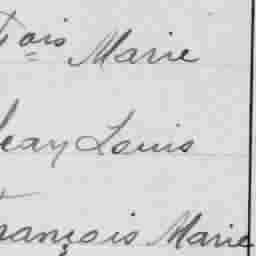 çois Marie
Jean Louis
François Marie